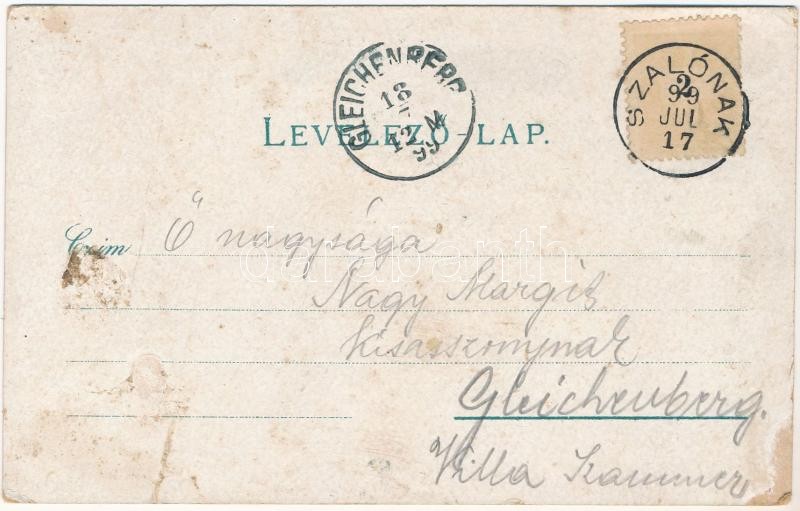 GLEICHENBERG
18
7
12 N
99
SZALÓNAK
2
99
JUL
17
LEVELEZŐ-LAP.
Czim Ő nagysága
darabanth
Nagy Margit
kisasszonynak
Gleichenberg.
Villa Kammer